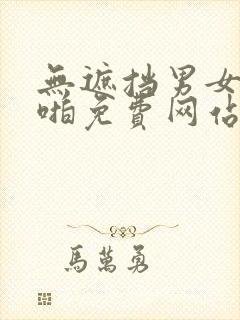 無遮挡男女
啪免費网佔
馬萬勇